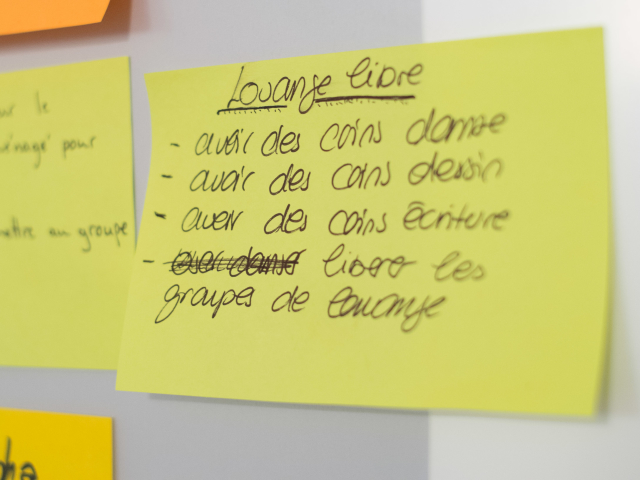 ur le
énagé pour
ettre en groupe
Louange libre
- avoir des coins danse
- avoir des coins dessin
- avoir des coins écriture
- oser danser libérer les
groupes de louange